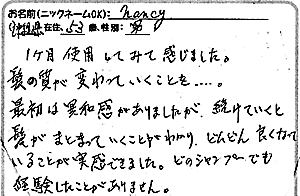 お名前(ニックネームOK): nancy
沖縄県在住、53歳、性別: 女
1ヶ月使用してみて感じました。
髪の質が変わっていくことを....。
最初は異和感がありましたが、続けていくと
髪がまとまっていくことがわかり、どんどん良くなって
いることが実感できました。どのシャンプーでも
経験したことがありません。